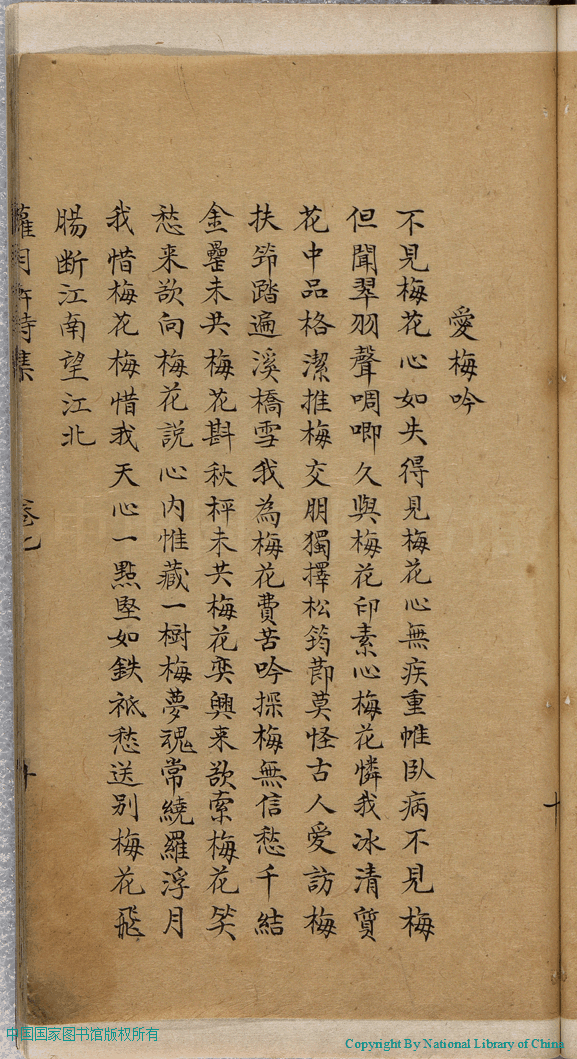 愛梅吟
不見梅花心如失得見梅花心無疾重帷臥病不見梅
但聞翠羽聲啁唧久與梅花印素心梅花憐我冰清質
花中品格潔推梅交朋獨擇松筠節莫怪古人愛訪梅
扶笻踏遍溪橋雪我為梅花費苦吟探梅無信愁千結
金罍未共梅花斟秋枰未共梅花奕興来欲索梅花笑
愁来欲向梅花説心内惟藏一樹梅夢魂常繞羅浮月
我惜梅花梅惜我天心一點堅如鉄祗愁送别梅花飛
腸断江南望江北
詩集
卷七
十
中国国家图书馆版权所有
Copyright By National Library of China